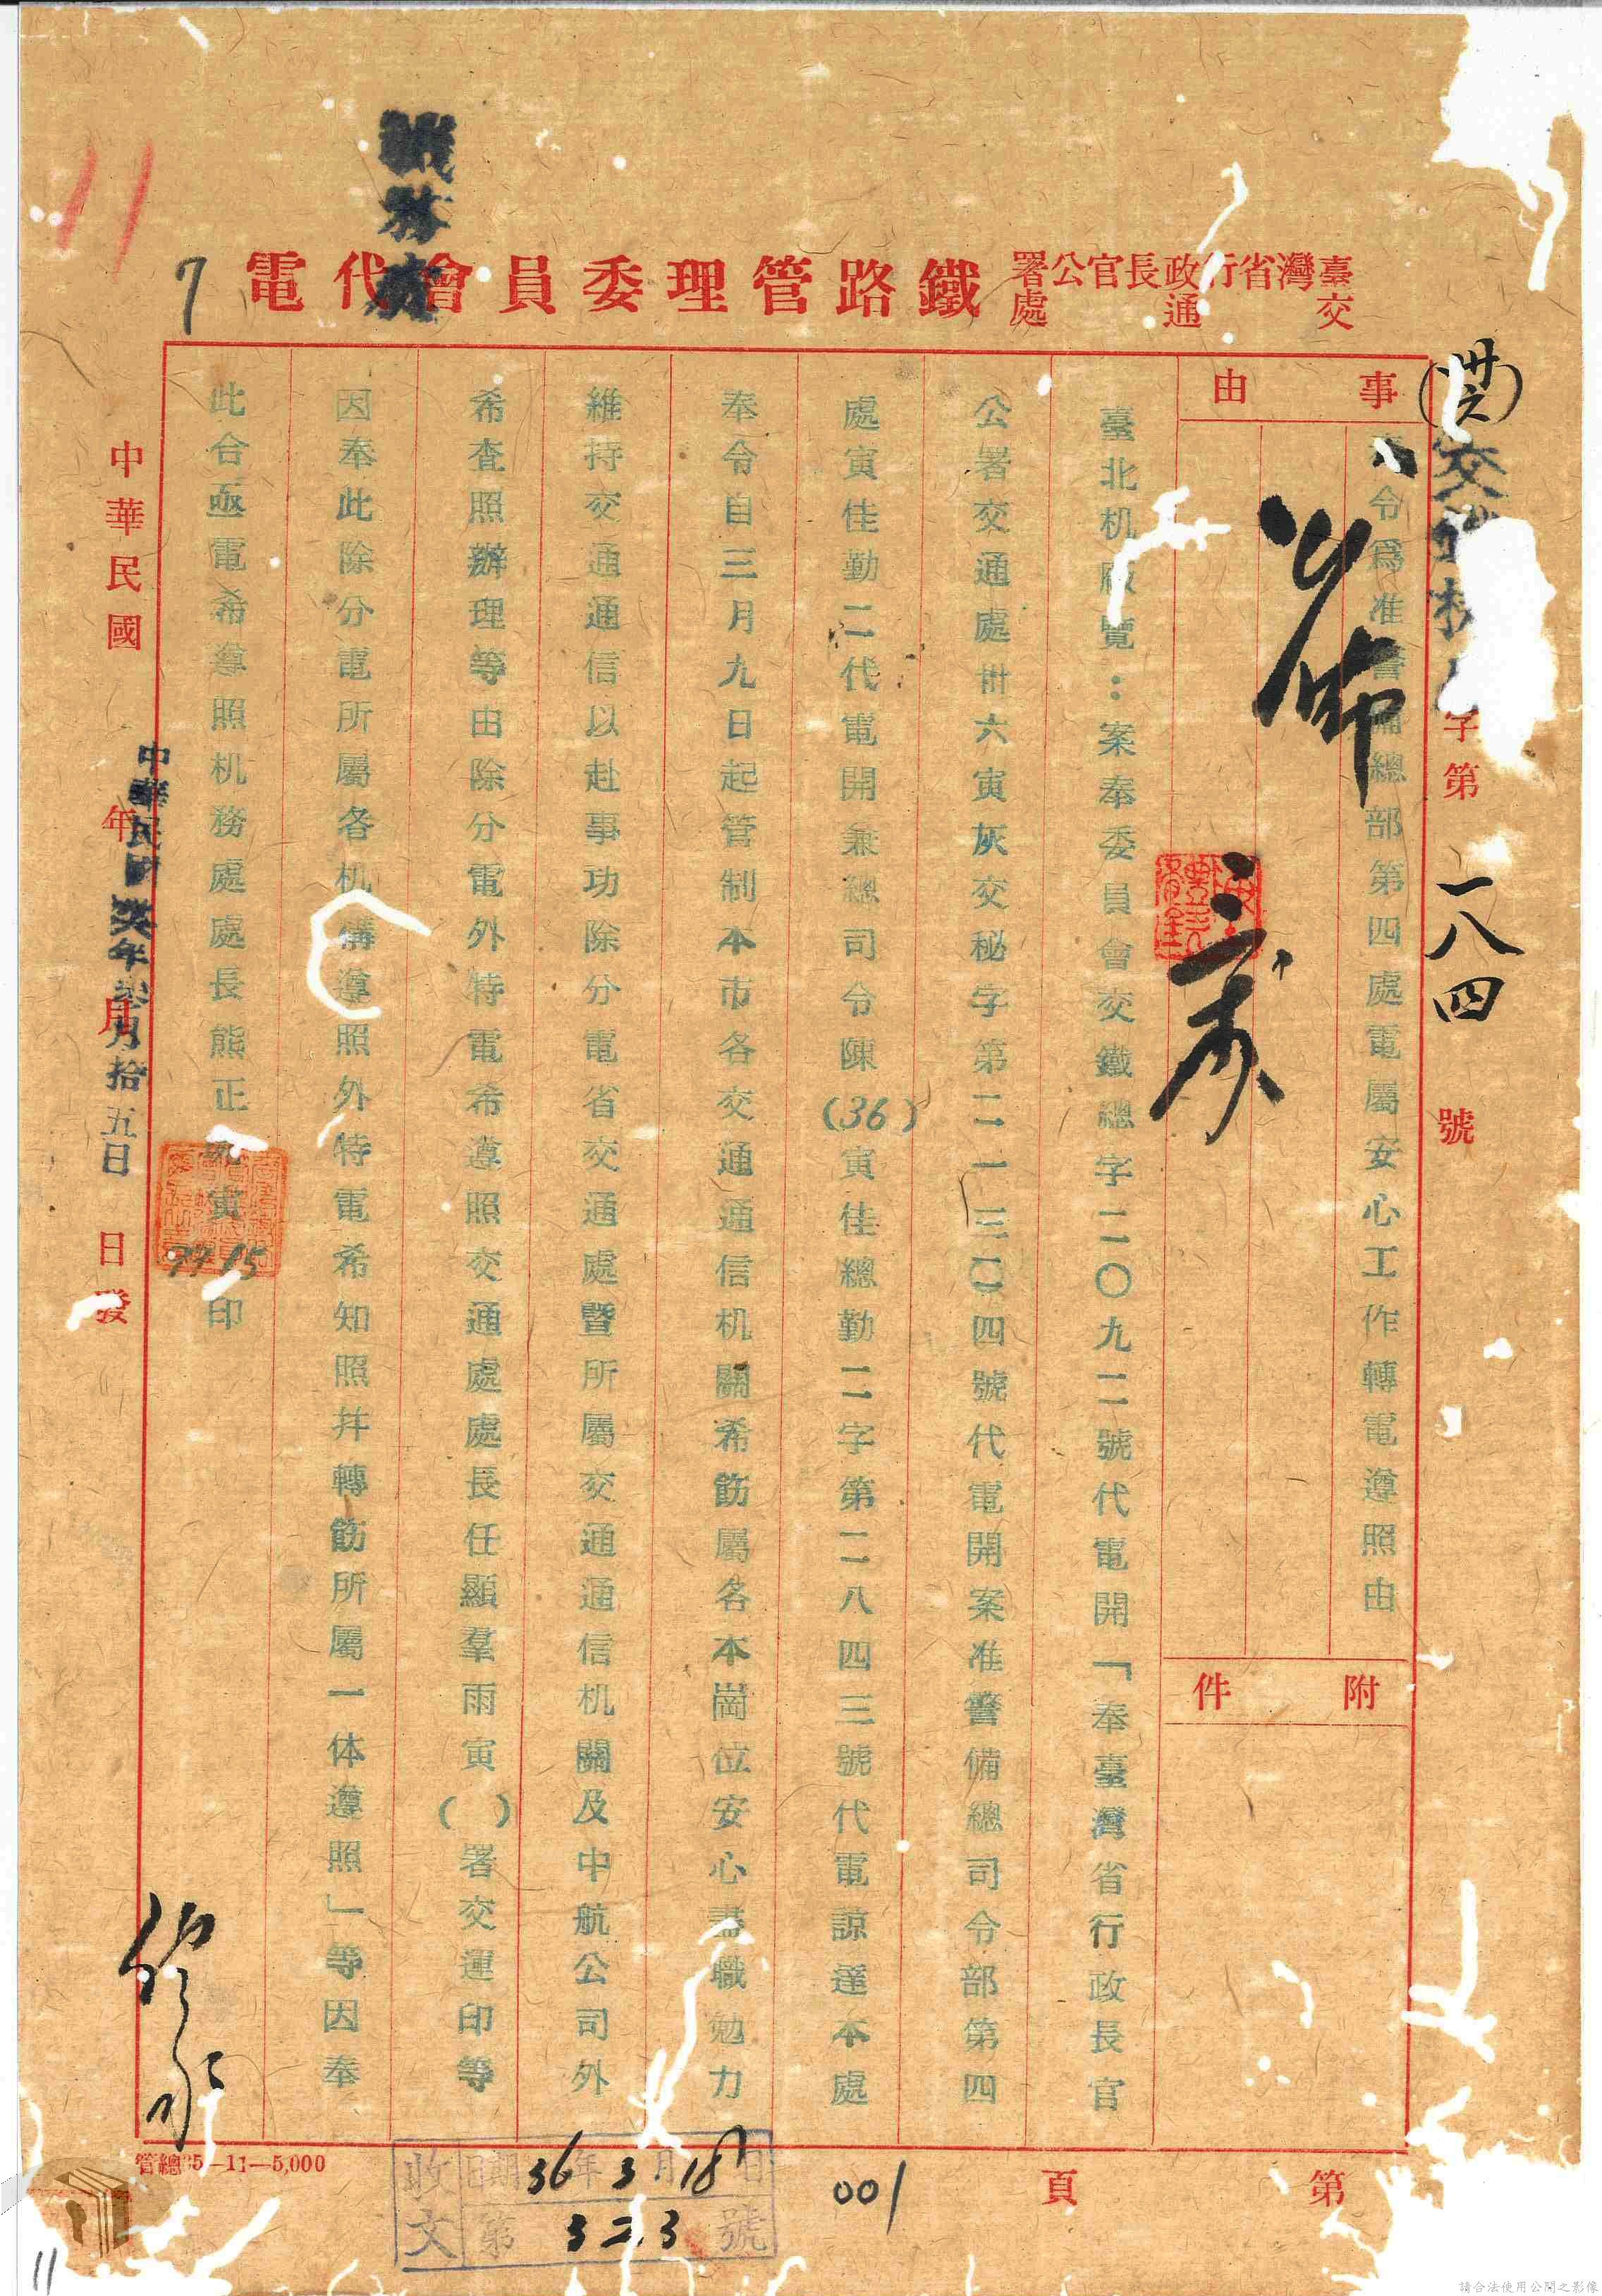 臺灣省行政長官公署
交通處
鐵路管理委員會代電
機務處
(卅六)交鐵
字第一八四號
事由
令為准警備總部第四處電屬安心工作轉電遵照由
附件
公佈
臺北机廠覽：案奉委員會交鐵總字二〇九二號代電開「奉臺灣省行政長官
公署交通處卅六寅灰交秘字第二一三〇四號代電開案准警備總司令部第四
處寅佳勤二代電開兼總司令陳(36)寅佳總勤二字第二八四三號代電諒達本處
奉令自三月九日起管制本市各交通通信机關希飭屬各本崗位安心盡職勉力
維持交通通信以赴事功除分電省交通處暨所屬交通通信机關及中航公司外
希查照辦理等由除分電外特電希遵照交通處處長任顯羣雨寅( )署交運印等
因奉此除分電所屬各机構遵照外特電希知照并轉飭所屬一体遵照」等因奉
此合亟電希遵照机務處處長熊正寅印
15
中華民國 年 月 日發
中華民國叄年叁月拾五日
管總35—11—5,000
收文
日期 36年3月18日
第 323 號
001
第 頁
7
11
11
請合法使用公開之影像